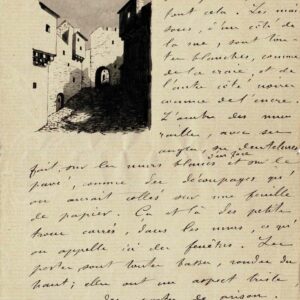 tout cela. Les mai
sons, d'un côté de
la rue, sont tou
tes blanches, comme
de la craie, et de
l'autre côté noires
comme de l'encre.
L'ombre des mu
railles, avec ses
angles, ses dentelures
fait, sur les murs blancs et sur le
pavé, comme des découpages qu'
on aurait collés sur une feuille
de papier. Çà et là des petits
trous carrés, dans les murs, ce qu'
on appelle ici des fenêtres. Les
portes sont toutes basses, rondes du
haut; elles ont un aspect triste,
de prison.